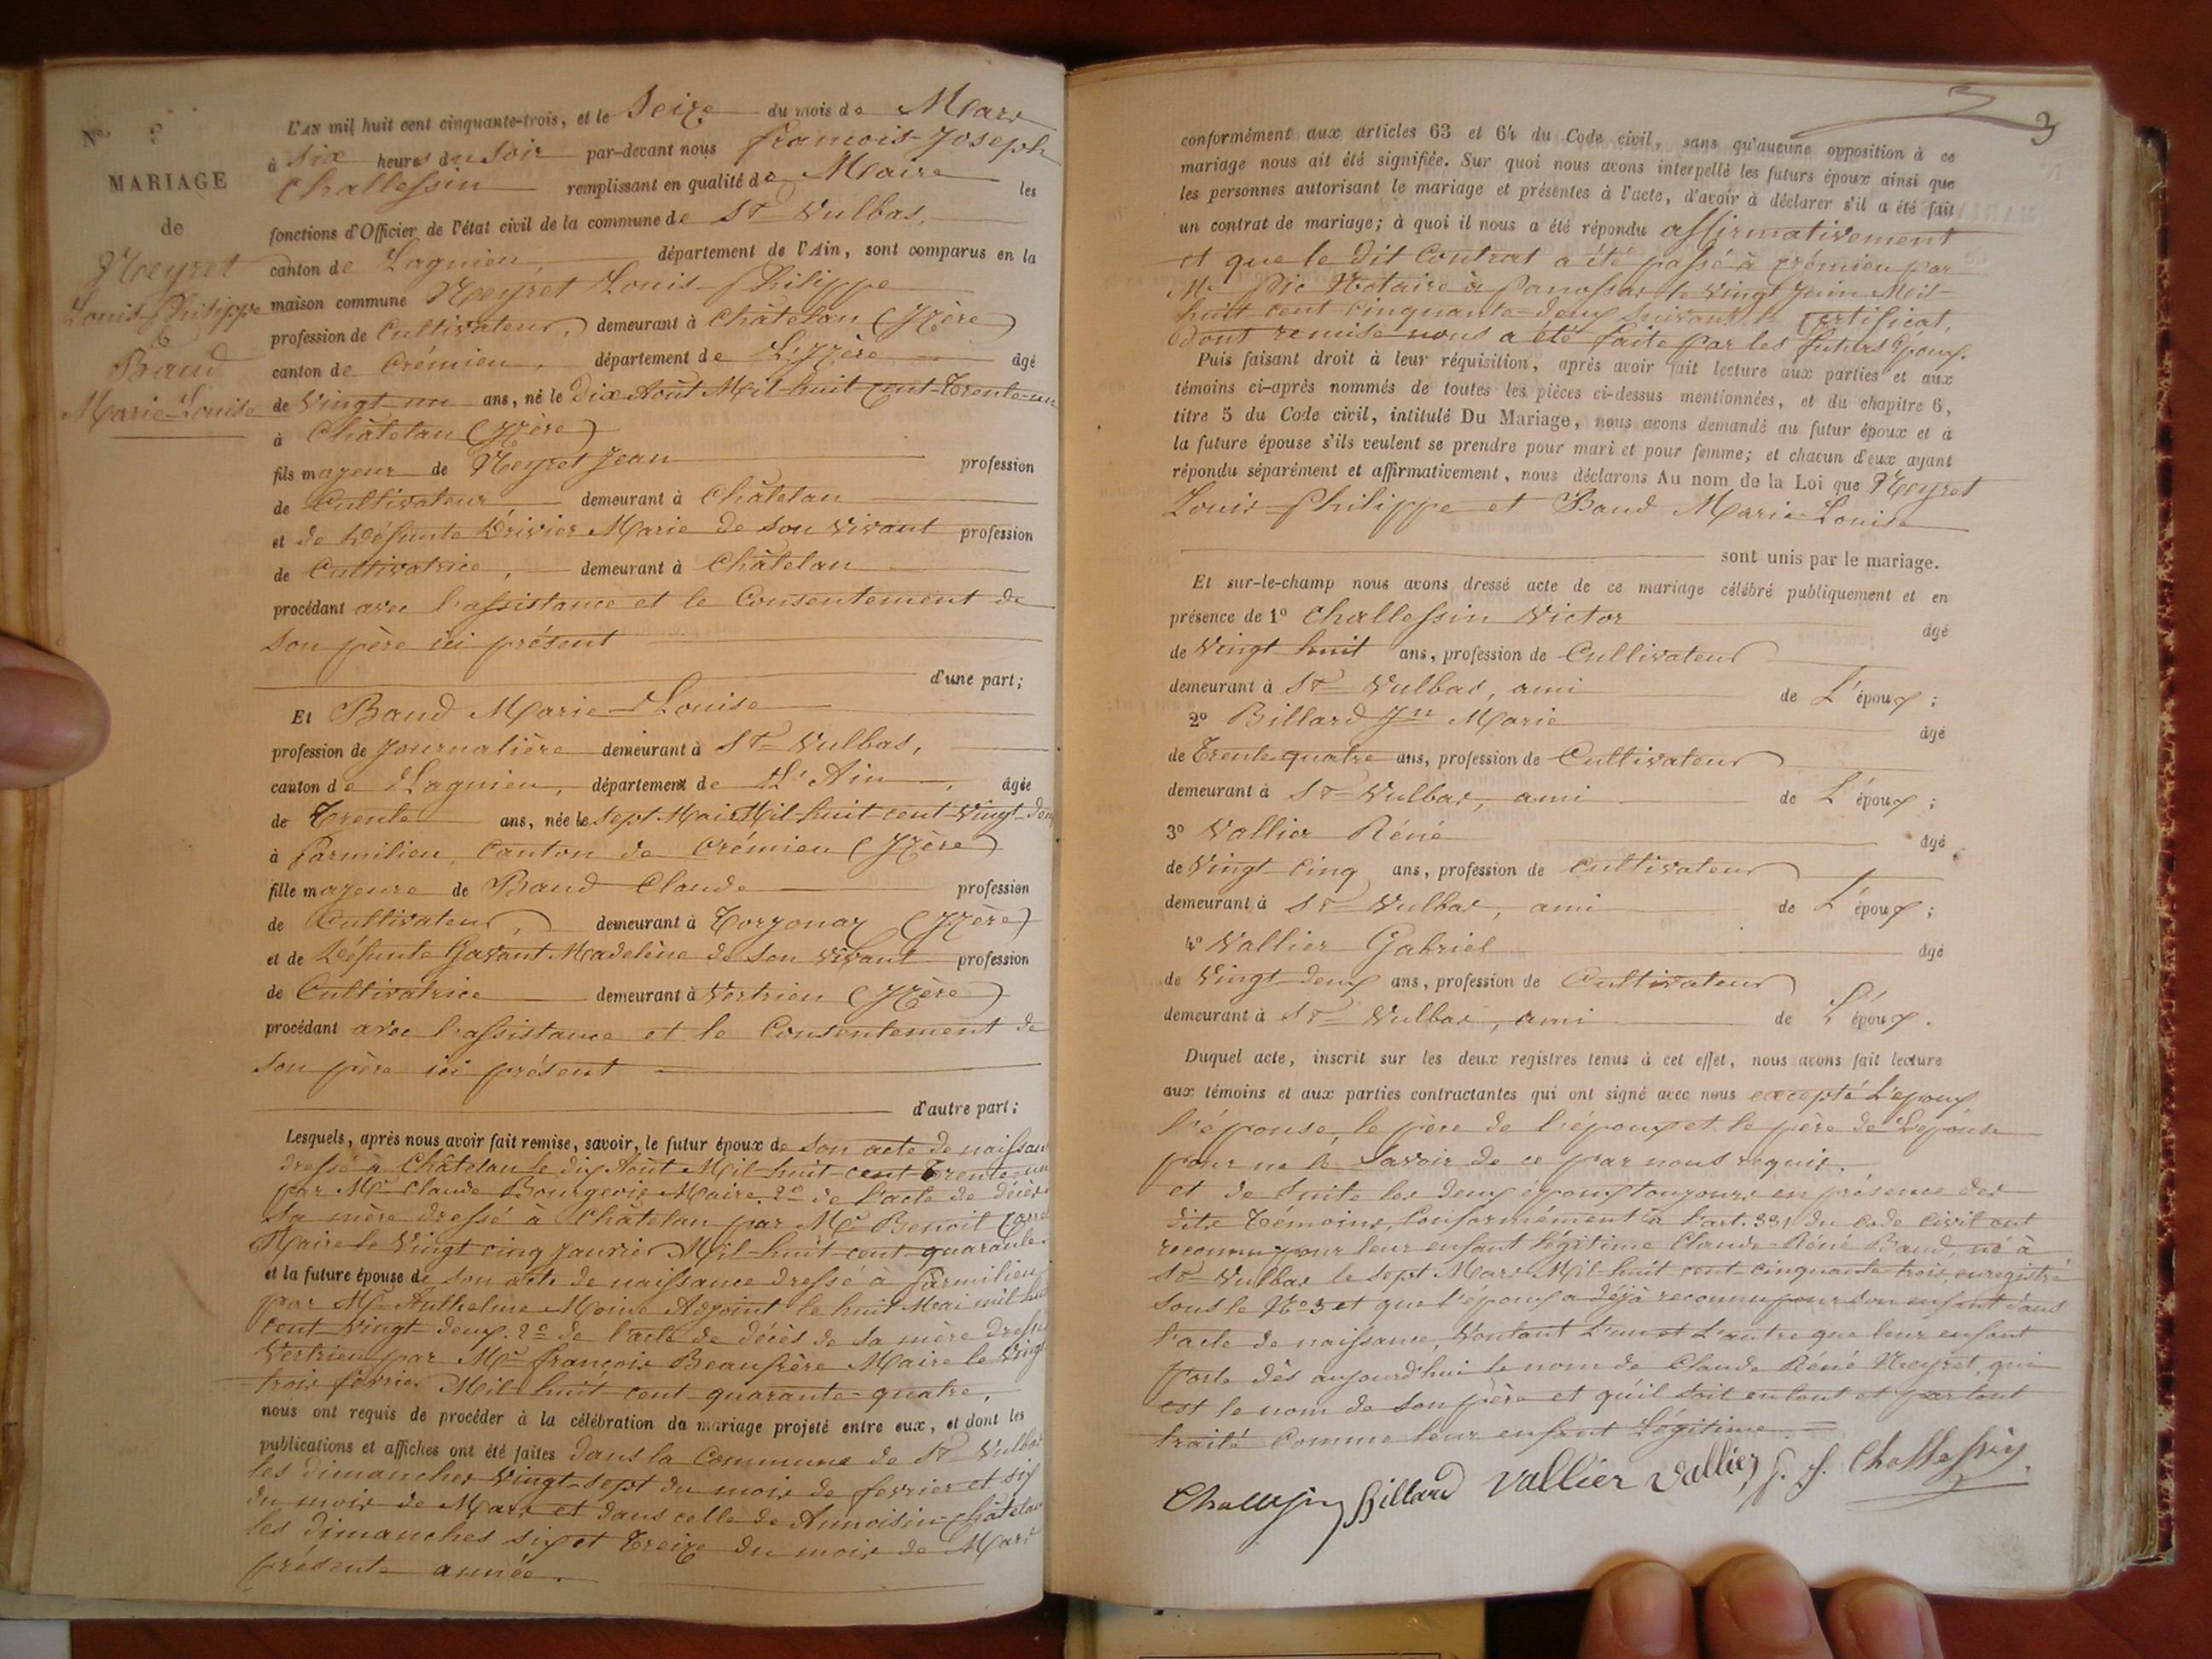 N.º
MARIAGE
de
Neyret
Louis-Philippe
&
Baud
Marie-Louise
L'AN mil huit cent cinquante-trois, et le Seize du mois de Mars
à six heures du soir par-devant nous francois-Joseph
Challessin remplissant en qualité de Maire les
fonctions d'Officier de l'état civil de la commune de St Vulbas,
canton de Lagnieu, département de l'Ain, sont comparus en la
maison commune Neyret Louis-Philippe
profession de Cultivateur, demeurant à Châtelan (Izère)
canton de Crémieu, département de L'Izère âgé
de Vingt-un ans, né le Dix Août Mil-huit-Cent-Trente-un
à Châtelan (Izère)
fils majeur de Neyret Jean profession
de Cultivateur demeurant à Châtelan
et de Défunte Drivier Marie de son vivant profession
de Cultivatrice, demeurant à Châtelan
procédant avec l'assistance et le Consentement de
son père ici présent
d'une part;
Et Baud Marie-Louise
profession de Journalière demeurant à St Vulbas,
canton de Lagnieu, département de L'Ain, âgée
de Trente ans, née le sept Mai Mil-huit-cent-vingt-deux
à Parmilieu Canton de Crémieu (Izère)
fille majeure de Baud Claude profession
de Cultivateur, demeurant à Torjonaz (Izère)
et de Défunte Gavant Madelène de son vivant profession
de Cultivatrice demeurant à Vertrieu (Izère)
procédant avec l'assistance et le Consentement de
son père ici présent
d'autre part;
Lesquels, après nous avoir fait remise, savoir, le futur époux de son acte de naissan
dressé à Châtelan le dix Août Mil-huit-cent-Trente-un
par Mr Claude Bourgeois Maire. 2º de l'acte de décès
sa mère dressé à Châtelan par Mr Benoit
Maire le Vingt cinq Janvier Mil-huit-cent-quarante
et la future épouse de son acte de naissance dressé à Parmilieu
par Mr Anthelme Moine Adjoint le huit Mai mil-hui
cent-vingt-deux. 2º de l'acte de décès de sa mère dressé
Vertrieu par Mr françois Beaufrère Maire le Vingt
trois février Mil-huit-cent-quarante-quatre,
nous ont requis de procéder à la célébration du mariage projeté entre eux, et dont les
publications et affiches ont été faites dans la Commune de St Vulbas
les dimanches Vingt-sept du mois de fevrier et six
du mois de Mars et dans celle de Annoisin-Châtelan
les dimanches six et Treize du mois de Mars
présente année.
3
conformément aux articles 63 et 64 du Code civil, sans qu'aucune opposition à ce
mariage nous ait été signifiée. Sur quoi nous avons interpellé les futurs époux ainsi que
les personnes autorisant le mariage et présentes à l'acte, d'avoir à déclarer s'il a été fait
un contrat de mariage; à quoi il nous a été répondu affirmativement
et que le dit Contrat a été passé à Crémieu par
Me Pic Notaire à Panossas le Vingt Juin Mil-
huit cent cinquante-deux suivant le Certificat,
dont remise nous a été faite par les futurs époux.
Puis faisant droit à leur réquisition, après avoir fait lecture aux parties et aux
témoins ci-après nommés de toutes les pièces ci-dessus mentionnées, et du chapitre 6,
titre 5 du Code civil, intitulé Du Mariage, nous avons demandé au futur époux et à
la future épouse s'ils veulent se prendre pour mari et pour femme; et chacun d'eux ayant
répondu séparément et affirmativement, nous déclarons Au nom de la Loi que Neyret
Louis-Philippe et Baud Marie-Louise
sont unis par le mariage.
Et sur-le-champ nous avons dressé acte de ce mariage célébré publiquement et en
présence de 1º Challessin Victor âgé
de Vingt huit ans, profession de Cultivateur
demeurant à St Vulbas, ami de L'époux;
2º Billard Jn Marie âgé
de Trente quatre ans, profession de Cultivateur
demeurant à St Vulbas, ami de L'époux;
3º Vallier Réné âgé
de Vingt-Cinq ans, profession de Cultivateur
demeurant à St Vulbas, ami de L'époux;
4º Vallier Gabriel âgé
de Vingt-deux ans, profession de Cultivateur
demeurant à St Vulbas, ami de L'époux.
Duquel acte, inscrit sur les deux registres tenus à cet effet, nous avons fait lecture
aux témoins et aux parties contractantes qui ont signé avec nous excepté L'epoux
l'épouse, le père de l'époux et le père de L'épouse
pour ne le Savoir de ce par nous requis.
et de suite les deux époux toujours en présence des
dits Témoins, Conformément à l'art. 331 du code civil ont
reconnu pour leur enfant légitime Claude-Réné Baud, né à
St Vulbas le sept Mars Mil-huit-cent-cinquante trois, enregistré
sous le Nº 3 et que l'époux a déjà reconnu pour son enfant dans
l'acte de naissance, Voulant L'un et L'autre que leur enfant
porte dès aujourd'hui le nom de Claude Réné Neyret, qui
est le nom de son père et qu'il soit en tout et partout
traité Comme leur enfant Légitime.
Challessin Billard Vallier Vallier f. J. Challessin